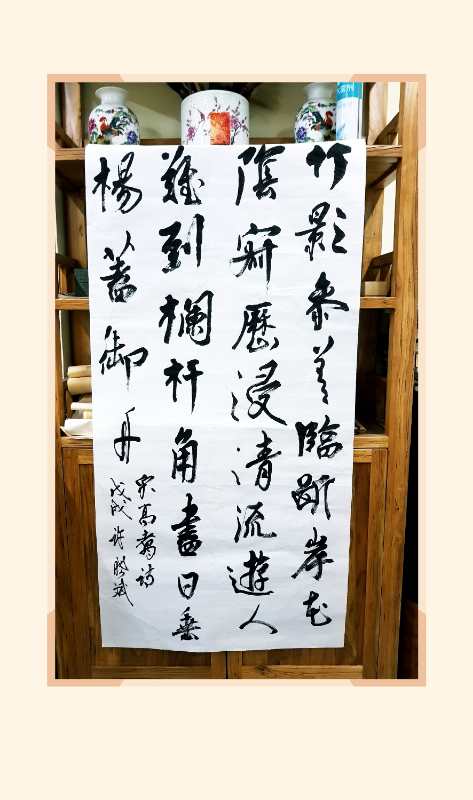 竹影參差臨斷岸花
陰寂歷浸清流遊人
難到欄杆角盡日垂
楊蓋御舟
宋高翥詩
戊戌 許